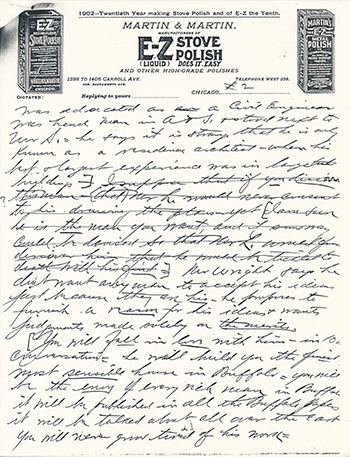 1902—Twentieth Year making Stove Polish and of E-Z the Tenth.
MARTIN & MARTIN,
MANUFACTURERS OF
E-Z STOVE POLISH
(LIQUID) DOES IT EASY
AND OTHER HIGH-GRADE POLISHES
1396 TO 1405 CARROLL AVE.
COR. SACRAMENTO AVE.
TELEPHONE WEST 238.
DICTATED:
Replying to yours
CHICAGO,
# 2
MARTIN'S
E-Z
METAL
POLISH
E-Z
STOVE
POLISH
CHICAGO
was educated as a Civil Engineer
was head man in A & S. & stood next to
he says it is strange that he is only
known as a residence architect - when his
best & largest experience was in large
buildings
I suppose that if you
he would never consent
to his
he is the man you want, and if
could be devised so that
discover him, that he would be
dealt with his
Mr Wright says he
dont want any man to accept his ideas
just because they are his - he proposes to
furnish a reason for his ideas & wants
judgments made solely on the merits
You will fall in love with him - in
conversation - he will build you the finest
most sensible house in Buffalo - you will
be the envy of every rich man in Buffalo
it will be published in all the Buffalo papers
it will be talked about all over the East
You will never grow tired of his work -